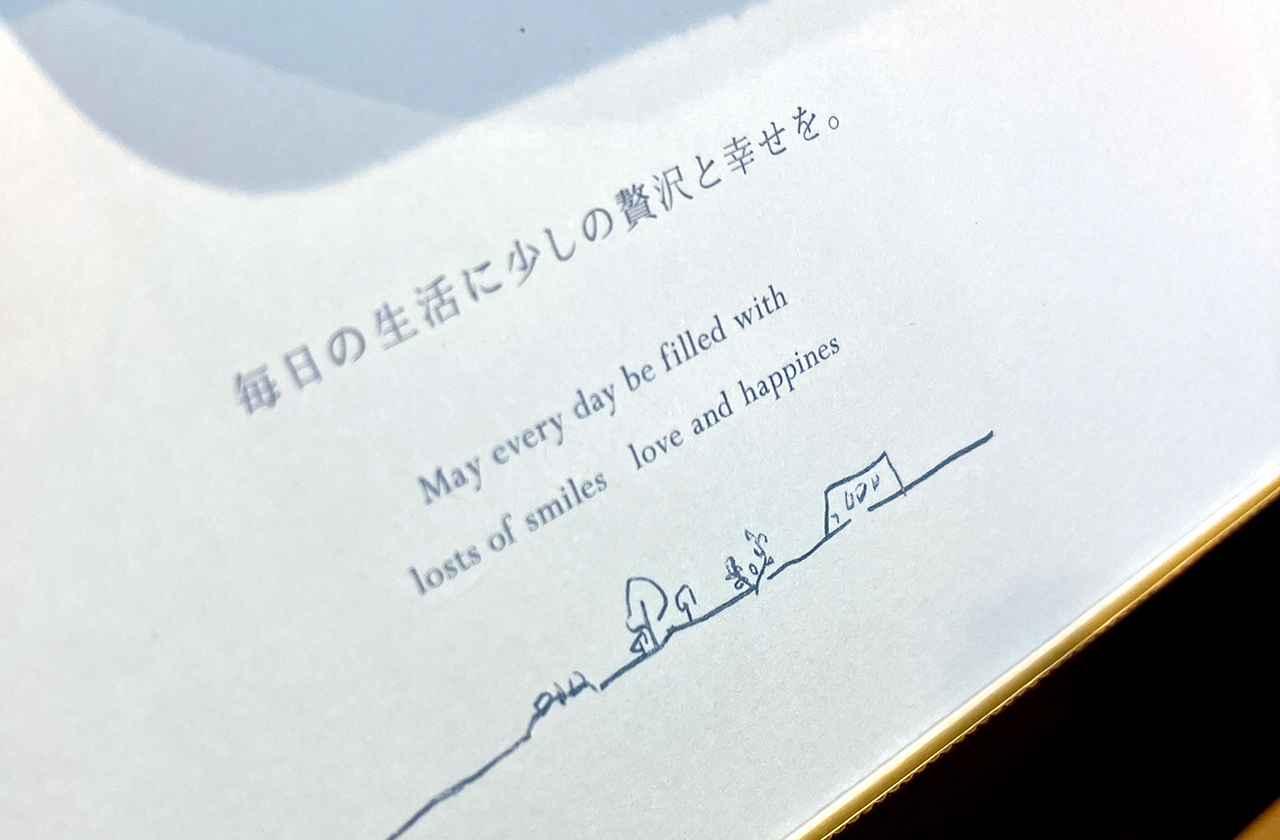 毎日の生活に少しの贅沢と幸せを。
May every day be filled with
losts of smiles love and happines